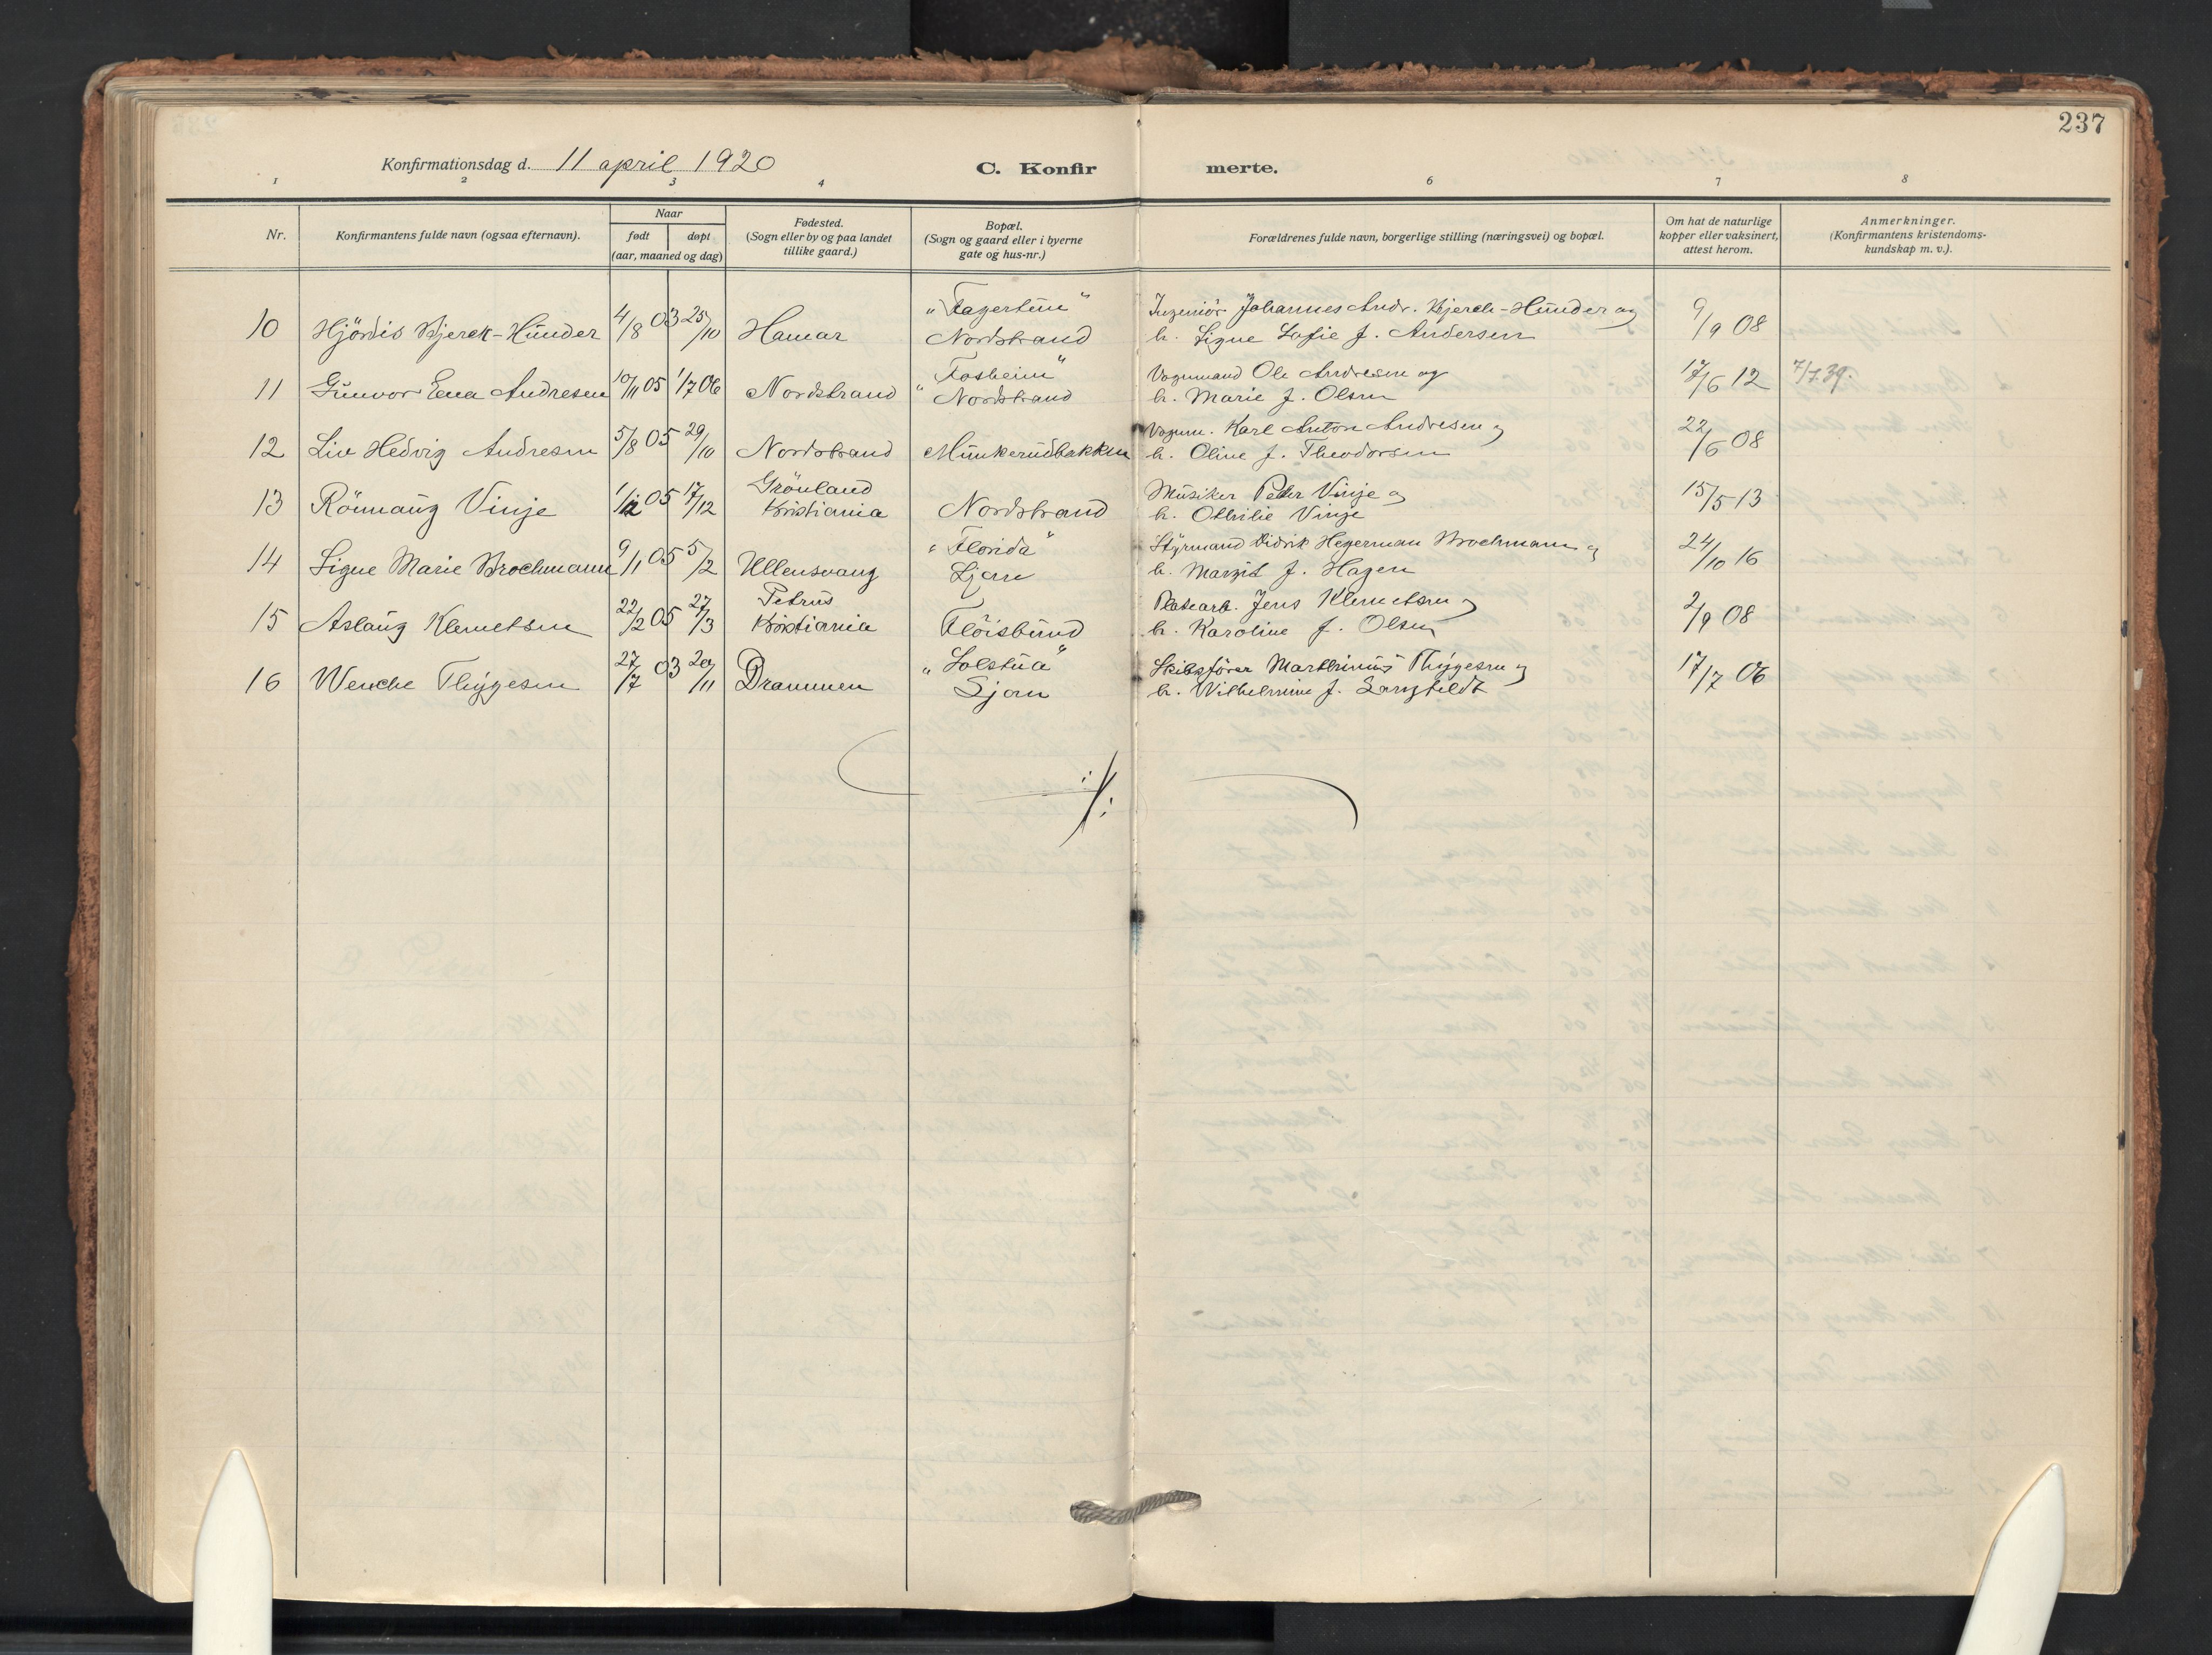 237
Konfirmationsdag d. 11 april 1920
C. Konfir merte.
1 2 3 4 6 7 8
Nr.
Konfirmantens fulde navn (ogsaa efternavn).
Naar
født døpt
(aar, maaned og dag)
Fødested.
(Sogn eller by og paa landet
tillike gaard.)
Bopæl.
(Sogn og gaard eller i byerne
gate og hus-nr.)
Forældrenes fulde navn, borgerlige stilling (næringsvei) og bopæl.
Om hat de naturlige
kopper eller vaksinert,
attest herom.
Anmerkninger.
(Konfirmantens kristendoms-
kundskap m. v.).
10 Hjördis Bjerck-Hunder 4/8 03 25/10 Hamar
"Fagertun"
Nordstrand
Ingeniör Johannes Andr. Bjerck-Hunder og
h. Signe Sofie f. Andersen
9/9 08
11 Gunvor Ena Andresen 10/11 05 1/7 06 Nordstrand
"Fosheim"
Nordstrand
Vognmand Ole Andresen og
h. Marie f. Olsen
17/6 12 7/7.39.
12 Liv Hedvig Andresen 5/8 05 29/10 Nordstrand Munkerudbakken
Vognm. Karl Anton Andresen og
h. Oline f. Theodorsen
22/6 08
13 Rönnaug Vinje 1/12 05 17/12
Grönland
Kristiania
Nordstrand
Musiker Peter Vinje og
h. Othilie Vinje
15/5 13
14 Signe Marie Brochmann 9/1 05 5/2 Ullensvang
"Florida"
Ljan
Styrmand Didrik Hegerman Brochmann og
h. Margit f. Hagen
24/10 16
15 Aslaug Klemetsen 22/2 05 27/3
Petrus
Kristiania
Flöisbund
Platearb. Jens Klemetsen og
h. Karoline f. Olsen
2/9 08
16 Wenche Thygesen 27/7 03 29/11 Drammen
"Solstua"
Ljan
Skibsförer Marthinius Thygesen og
h. Wilhelmine f. Langfeldt
17/7 06